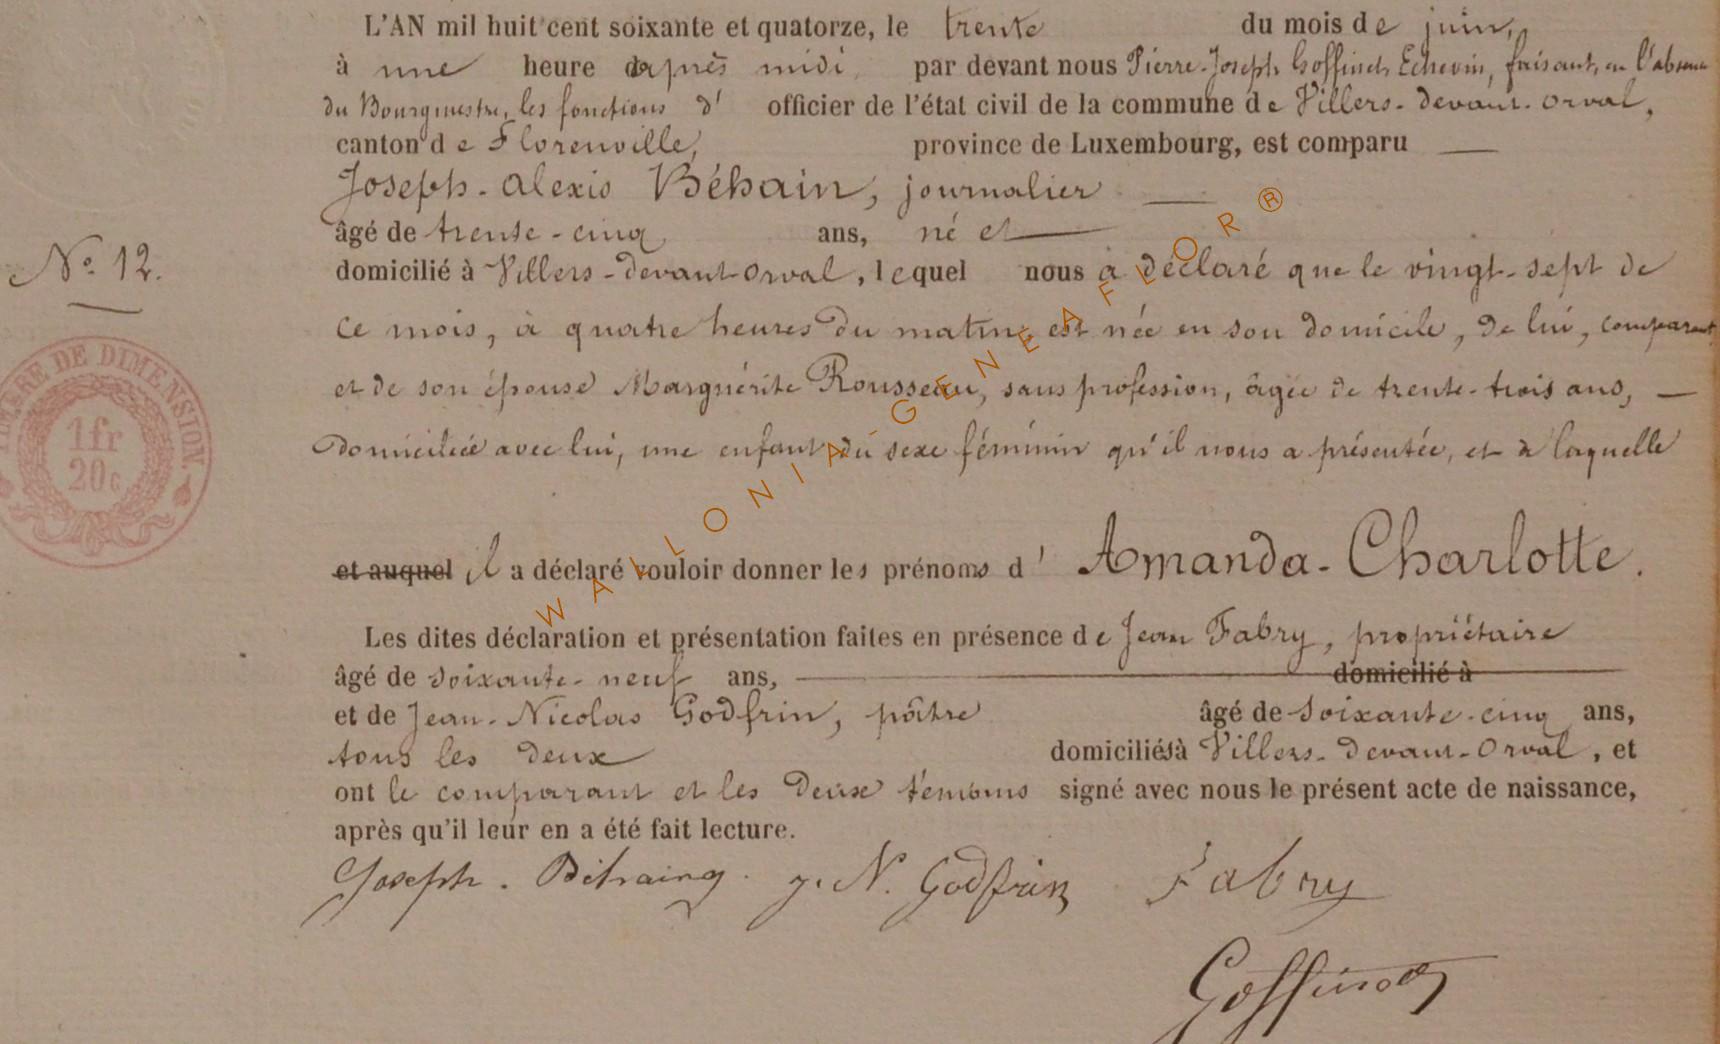 L'AN mil huit cent soixante et quatorze, le trente du mois de juin,
à une heure après midi, par devant nous Pierre-Joseph Goffinet, Echevin, faisant, en l'absence
du Bourgmestre, les fonctions d' officier de l'état civil de la commune de Villers-devant-Orval,
canton de Florenville, province de Luxembourg, est comparu
Joseph-Alexis Béhain, journalier
âgé de trente-cinq ans, né et
N° 12.
domicilié à Villers-devant-Orval, lequel nous a déclaré que le vingt-sept de
ce mois, à quatre heures du matin, est née en son domicile, de lui, comparant,
et de son épouse Marguérite Rousseau, sans profession, âgée de trente-trois ans,
domiciliée avec lui, une enfant du sexe féminin qu'il nous a présentée, et à laquelle
et auquel il a déclaré vouloir donner les prénoms d' Amanda-Charlotte.
Les dites déclaration et présentation faites en présence de Jean Fabry, propriétaire
âgé de soixante-neuf ans, domicilié à
et de Jean-Nicolas Godfrin, pâtre âgé de soixante-cinq ans,
tous les deux domiciliés à Villers-devant-Orval, et
ont le comparant et les deux témoins signé avec nous le présent acte de naissance,
après qu'il leur en a été fait lecture.
Joseph. Béhaing. J. N. Godfrin Fabry
Goffinet
TIMBRE DE DIMENSION.
1fr
20c
WALLONIA-GENEAFLOR®